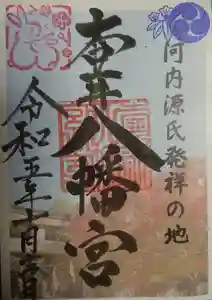 河内源氏発祥の地
壺井八幡宮
令和五年 月 日